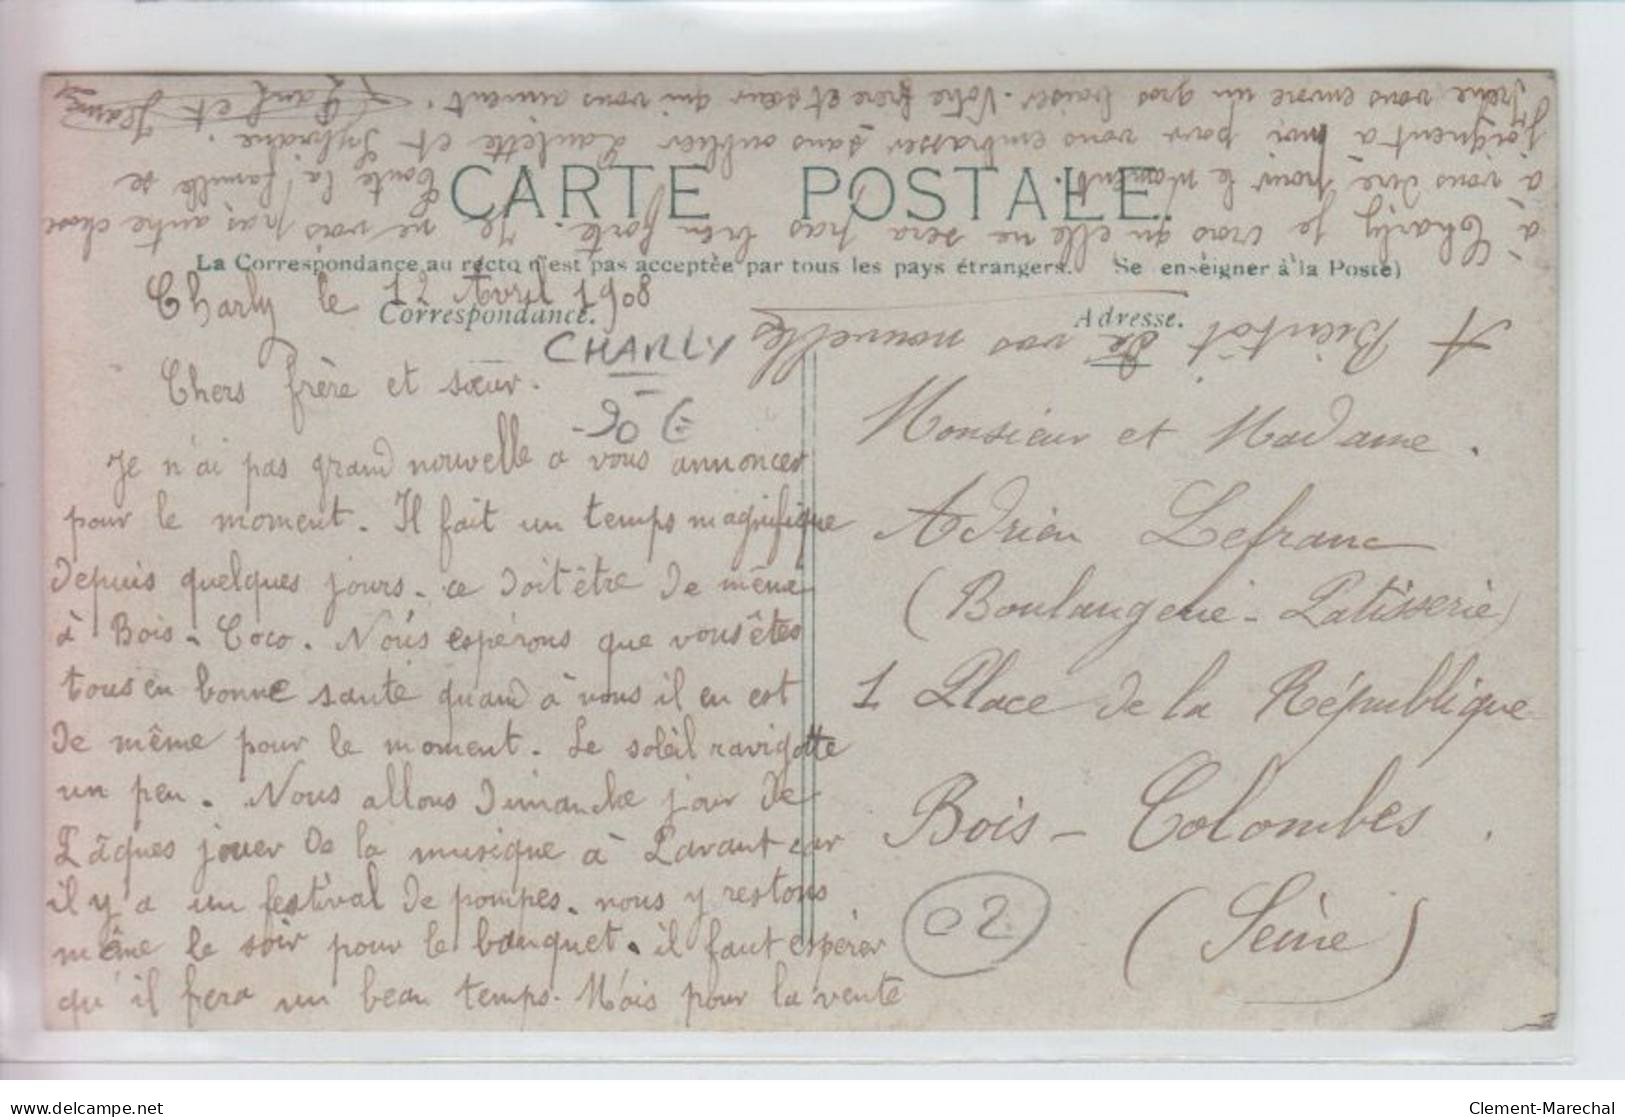 CARTE POSTALE.
La Correspondance au recto n'est pas acceptée par tous les pays étrangers. (Se enseigner à la Poste)
Correspondance.
Adresse.
Charly le 12 Avril 1908
CHARLY
90
Chers frère et sœur.
Je n'ai pas grand nouvelle a vous annoncer
pour le moment. Il fait un temps magnifique
depuis quelques jours. ce doit être de même
à Bois-Coco. Nous espérons que vous êtes
tous en bonne santé quand à nous il en est
de même pour le moment. Le soleil ravigotte
un peu. Nous allons Dimanche jour de
Pâques jouer de la musique à Pavant car
il y a un festival de pompes. nous y restons
même le soir pour le banquet. il faut espérer
qu'il fera un beau temps. Mais pour la vente
à Charly je crois qu'elle ne sera pas bien forte. Je ne vois pas autre chose
à vous dire pour le moment. Toute la famille se
joignent à moi pour vous embrasser sans oublier Paulette et Sylvidre.
Irène vous envoie un gros baiser. Votre frère et sœur qui vous aiment.
Paul et Jeanne
A Bientôt de vos nouvelles
Monsieur et Madame.
Adrien Lefranc
(Boulangerie-Patisserie)
1 Place de la République
Bois-Colombes.
(Seine)
02
Clement-Marechal
www.delcampe.net